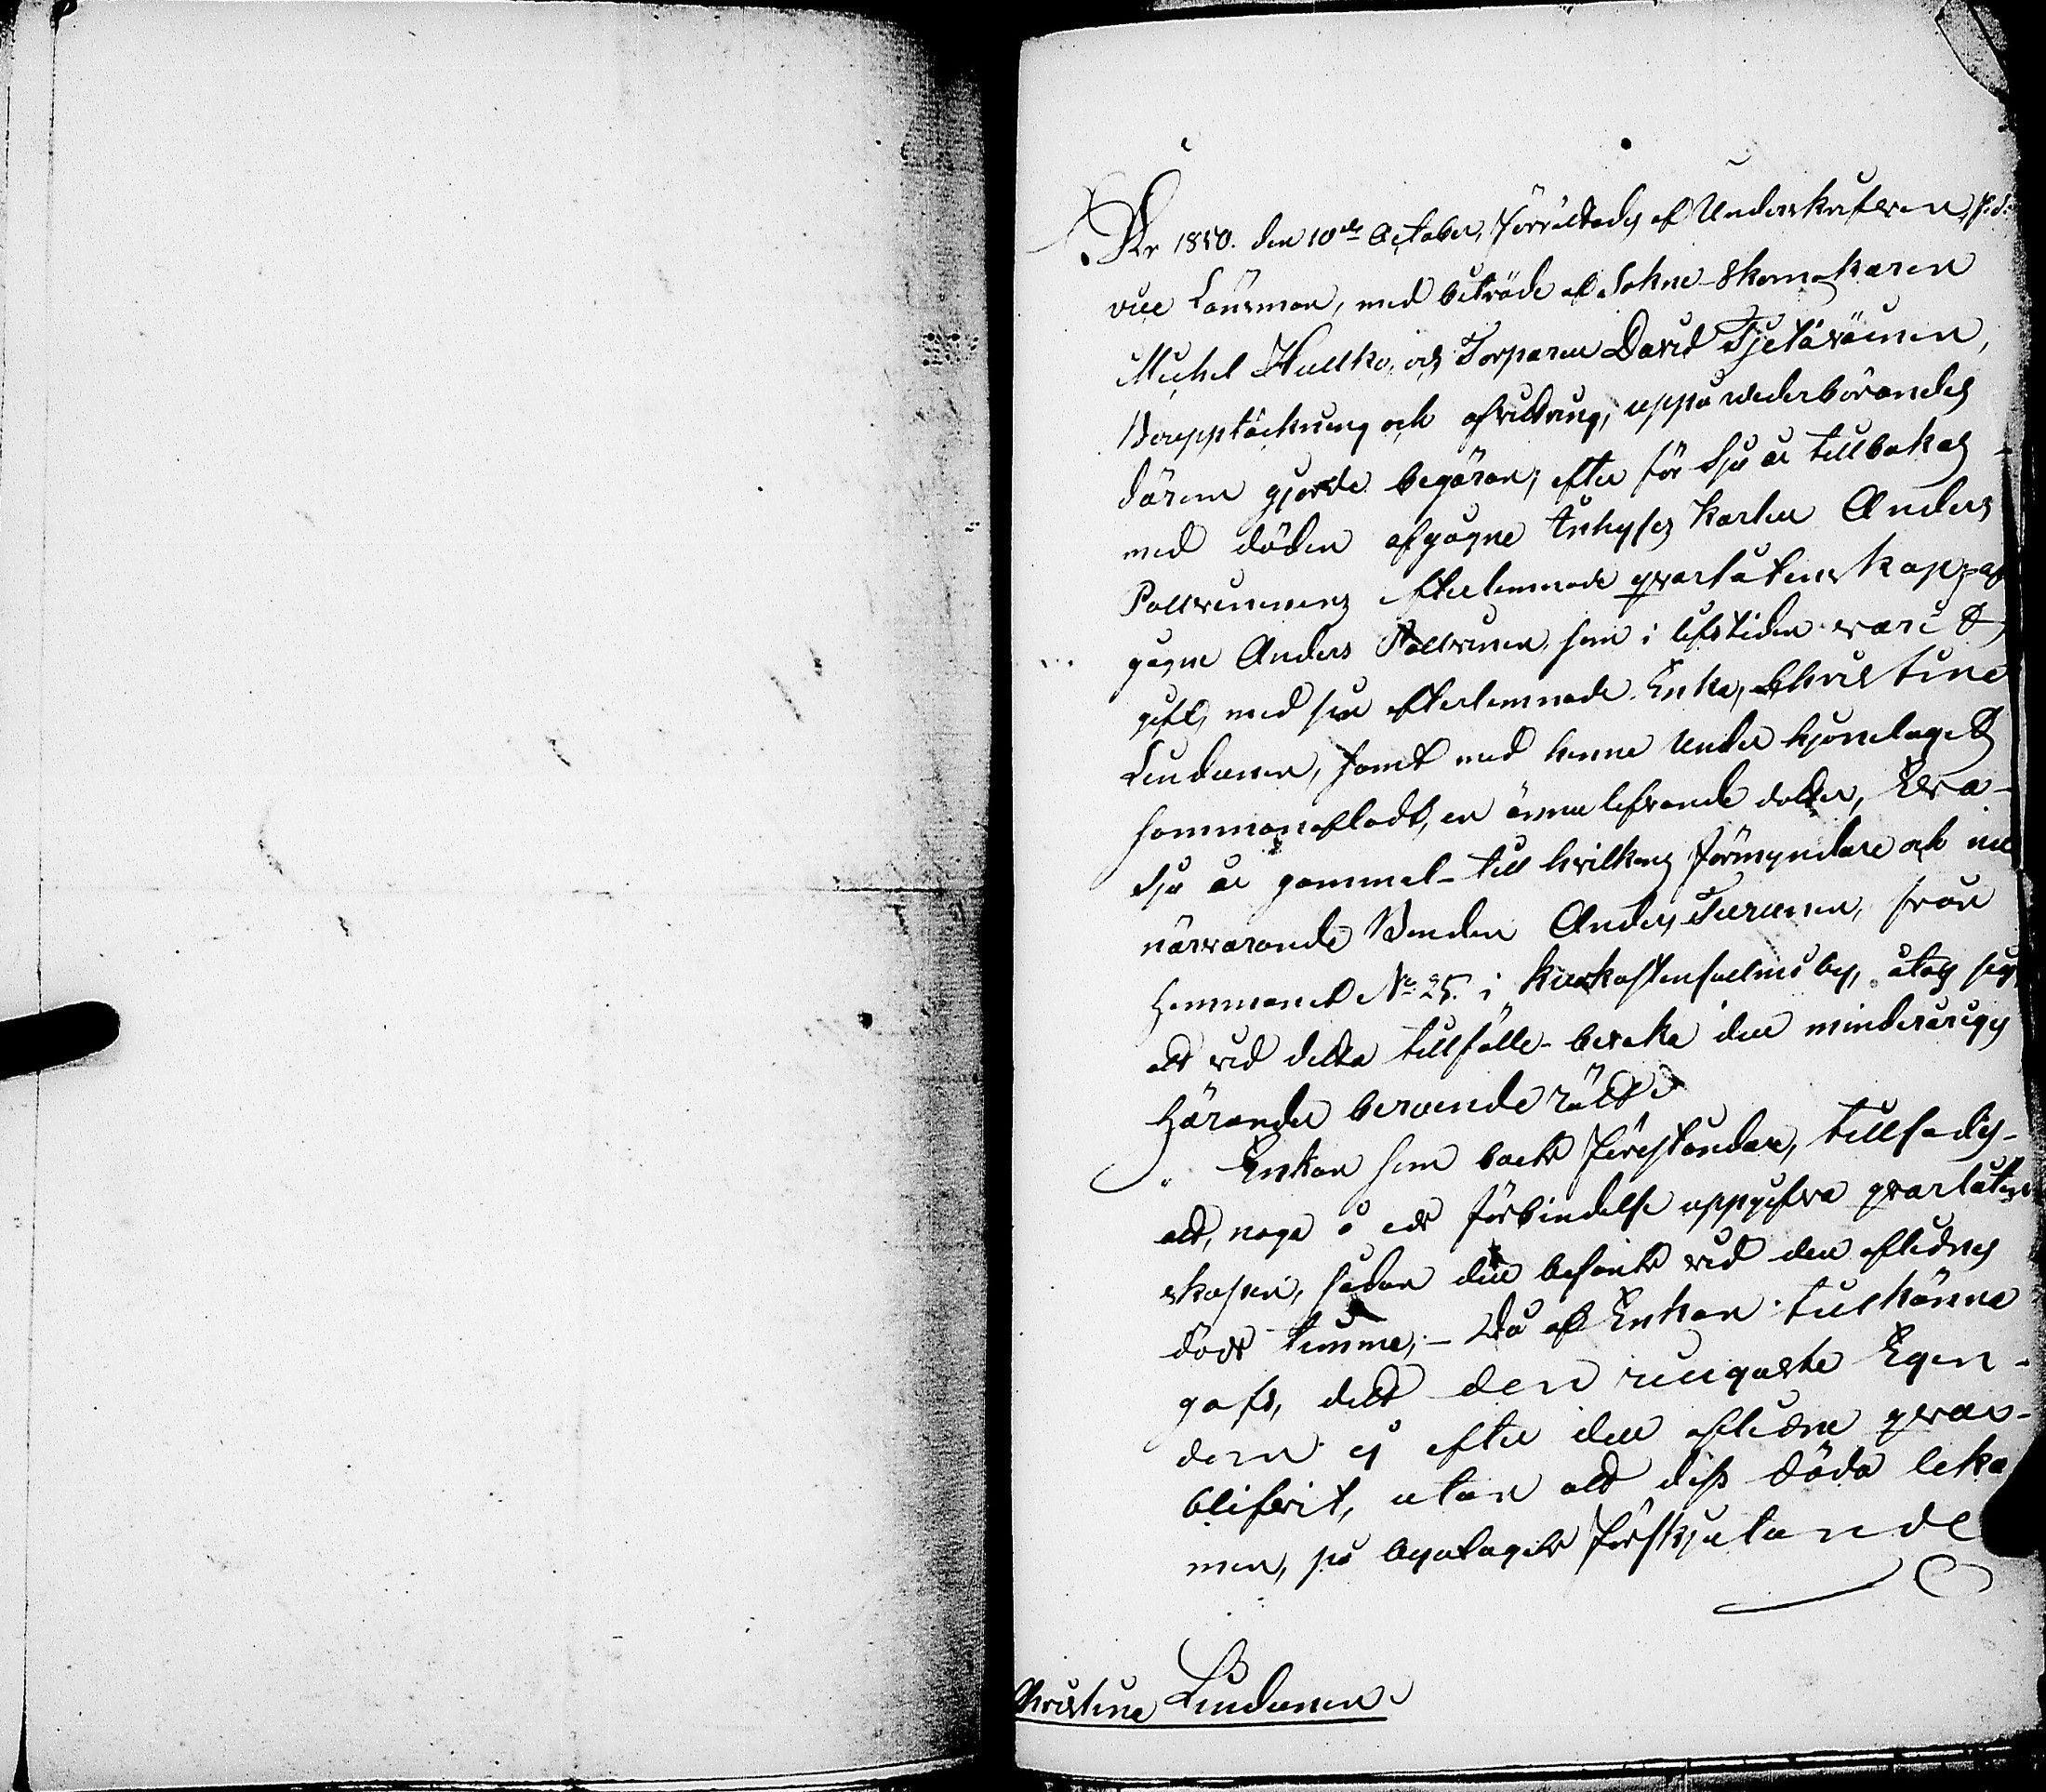 År 1850. den 10de October, förrättades af Underskrifven, t.f.
vice Länsman, med biträde af Sokne-Skomakaren
Michel Hulkko, och Torparen David Tjetäväinen,
Bouppteckning och afvitring, uppå vederbörandes
därom gjorde begäran; efter för sju år tillbakas
med döden afgågne Inhyses karlen Anders
Pallvinens efterlemnade qvarlåtenskap; af
gågne Anders Pallvinen, som i lifstiden varit
gift, med sin efterlemnade Enka, Christina
Lindunen, samt med henne under hjonelaget
sammanafladt, en ännu lefvande dotter, Eva
sju år gammal - till hvilkens förmyndare och nu
närvarande Bonden Anders Turunen, från
Hemmanet No 25. i by, åtog sig
att vid detta tillfälle bevaka den minderårigas
Häranden beroende rätt.
Enkan som boets föreståndare, tillsades
att, noga å eds förbindelse uppgifva qvarlåten
skapen, sådan den befants vid den aflidnes
döds timme; - Då af Enkan tillkänna
gafs, det den ringaste Egen-
dom ej efter den aflidne qvar-
blifvit, utan att dess döda leka
men, på byalagets förskjutande
Christina Lindunen